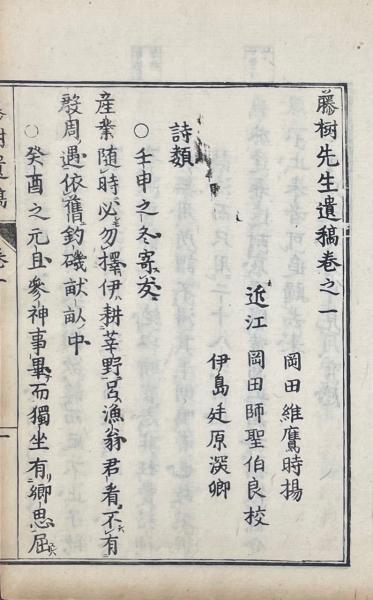 藤樹先生遺稿卷之一
岡田維鷹時揚
近江 岡田師聖伯良校
伊島廷原卿
詩類
○壬申之冬寄友
産業隨時必勿擇伊耕莘野呂漁翁君看不有
殷周遇依舊釣磯畎畝中
○癸酉之元旦參神事畢而獨坐有鄉思屈
樹遺稿 卷一